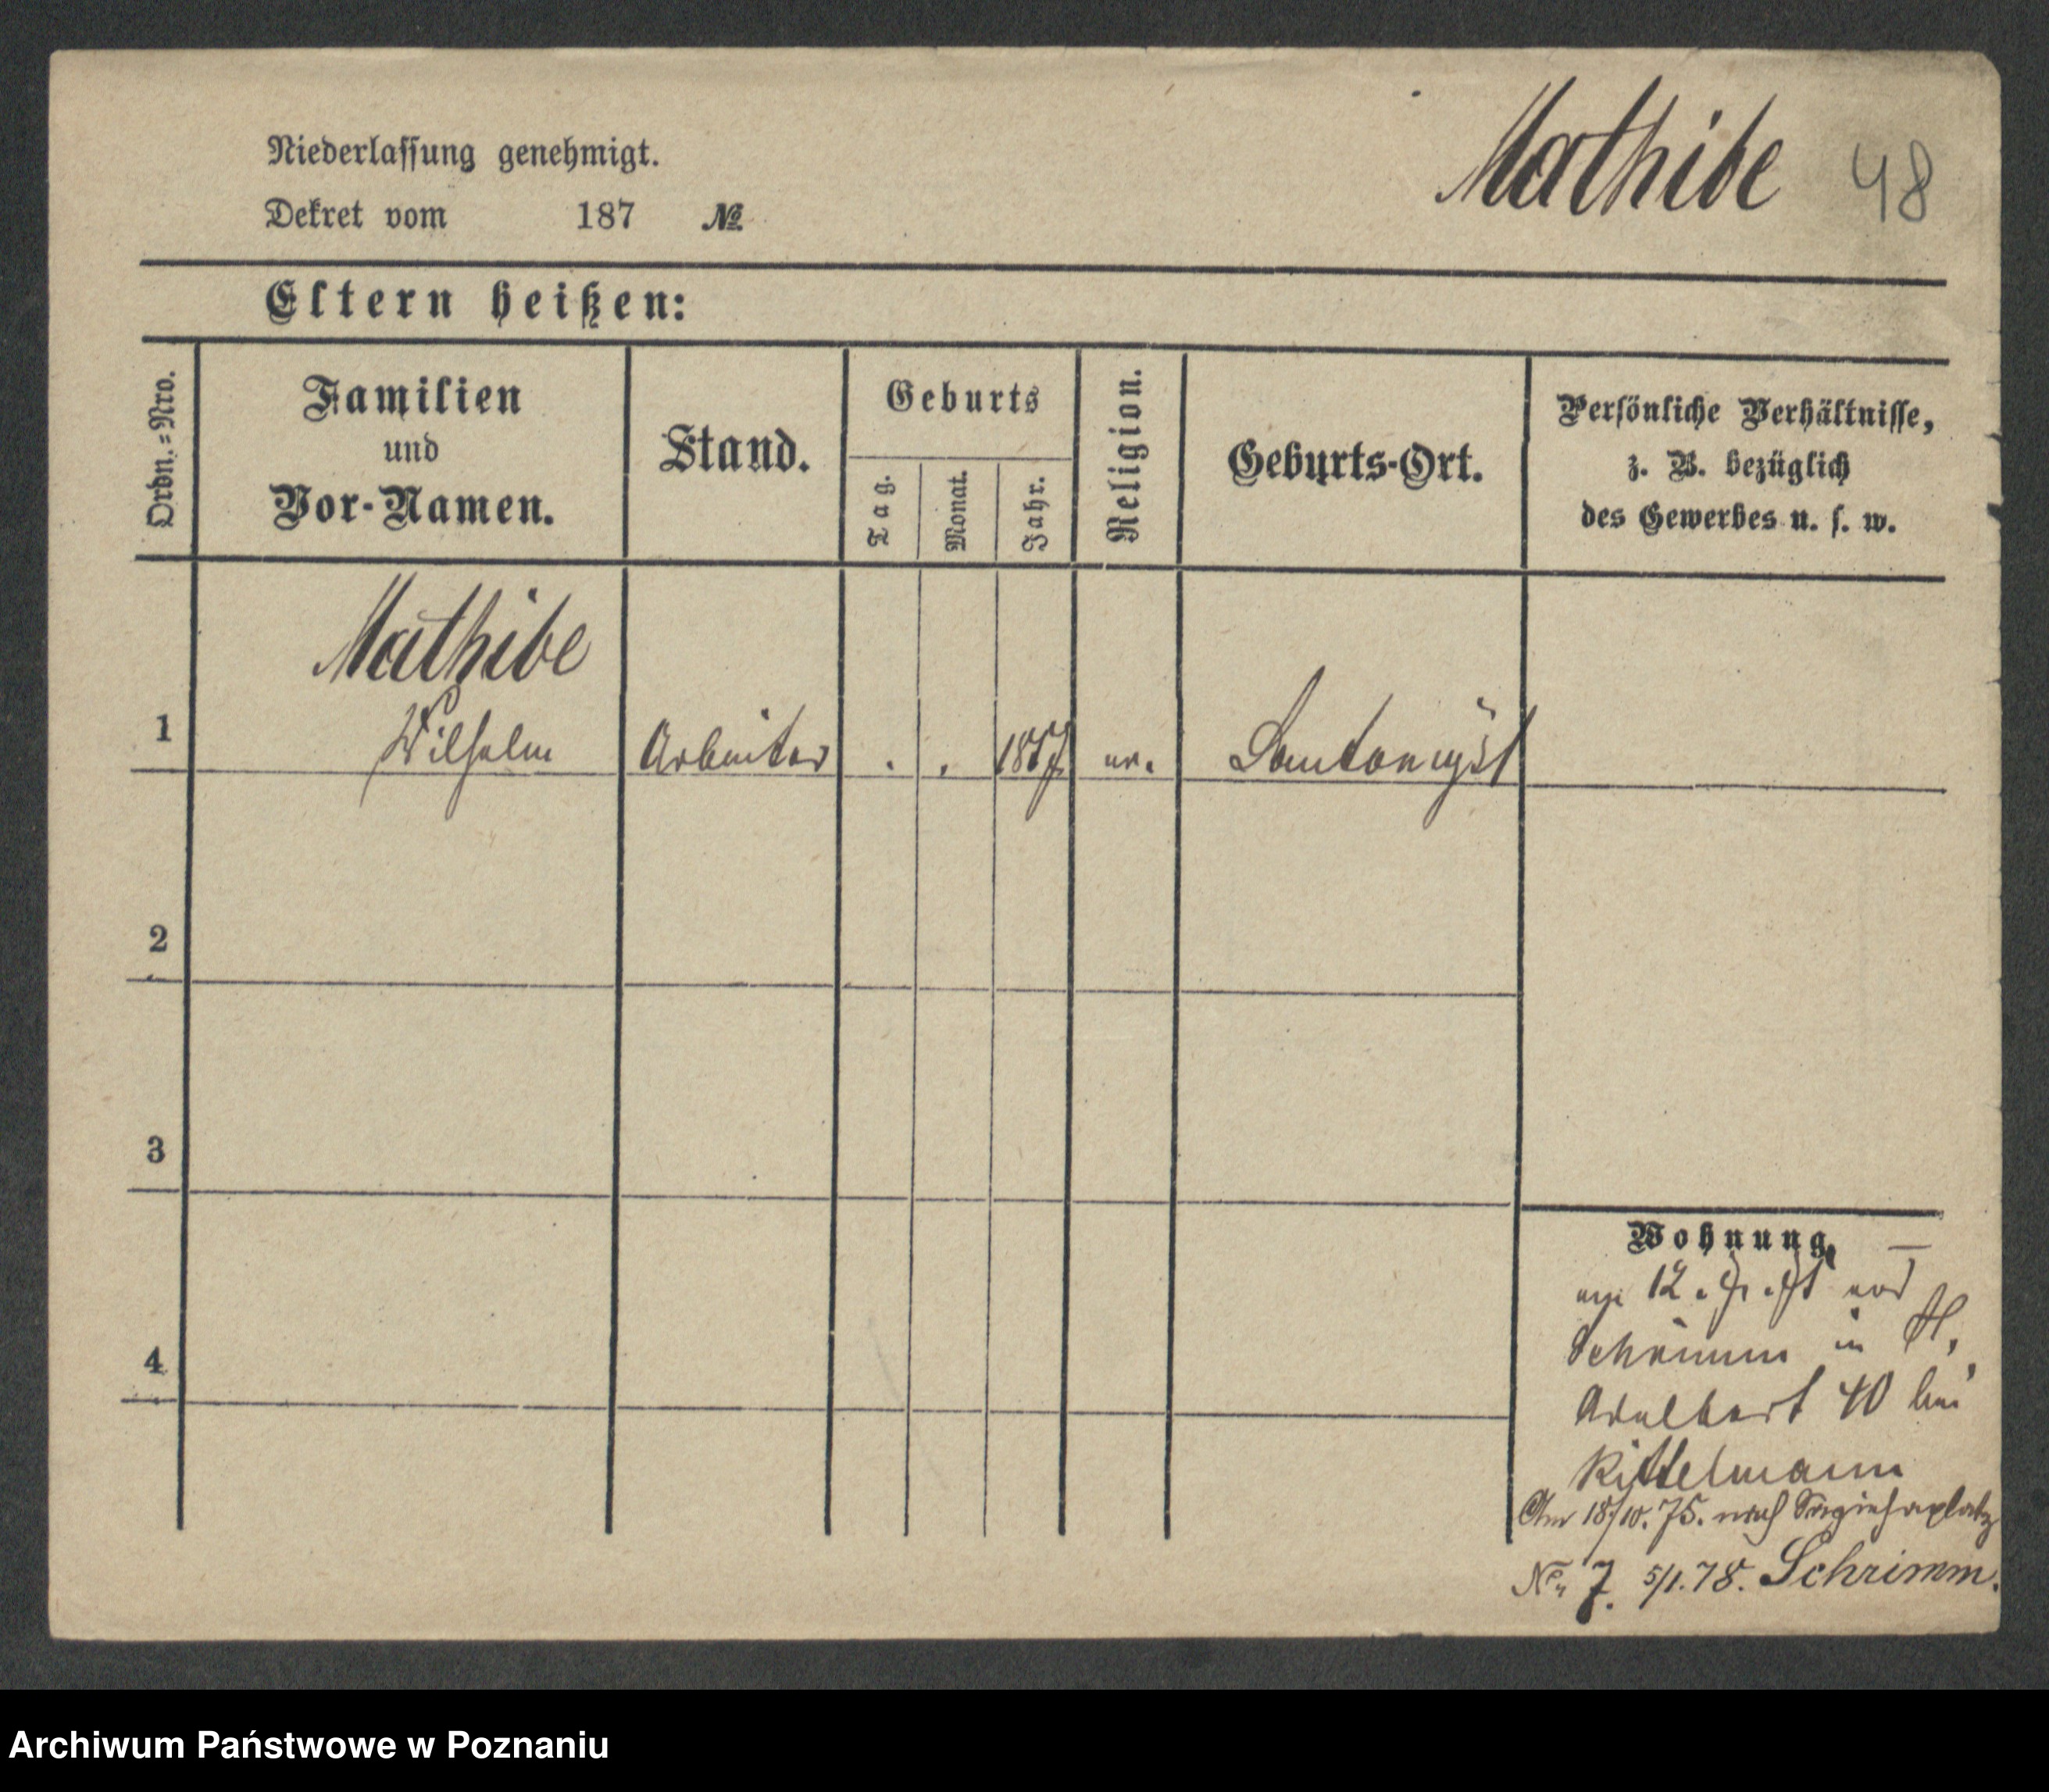 Mathibe 48
Niederlassung genehmigt.
Dekret vom 187 №
Eltern heißen:
Ordn.=Nro.
Familien
und
Vor-Namen.
Stand.
Geburts
Tag.
Monat.
Jahr.
Religion.
Geburts-Ort.
Persönliche Verhältnisse,
z. B. bezüglich
des Gewerbes u. s. w.
Mathibe
1 Wilhelm Arbeiter . . ev. Santomyśl
2
3
4
Wohnung.
12.
Schrimm in St.
Adalbert 40 bei
Kittelmann
Am 18/10. 75. nach Sapiehaplatz
No. 7. 5/1. 78. Schrimm.
Archiwum Państwowe w Poznaniu